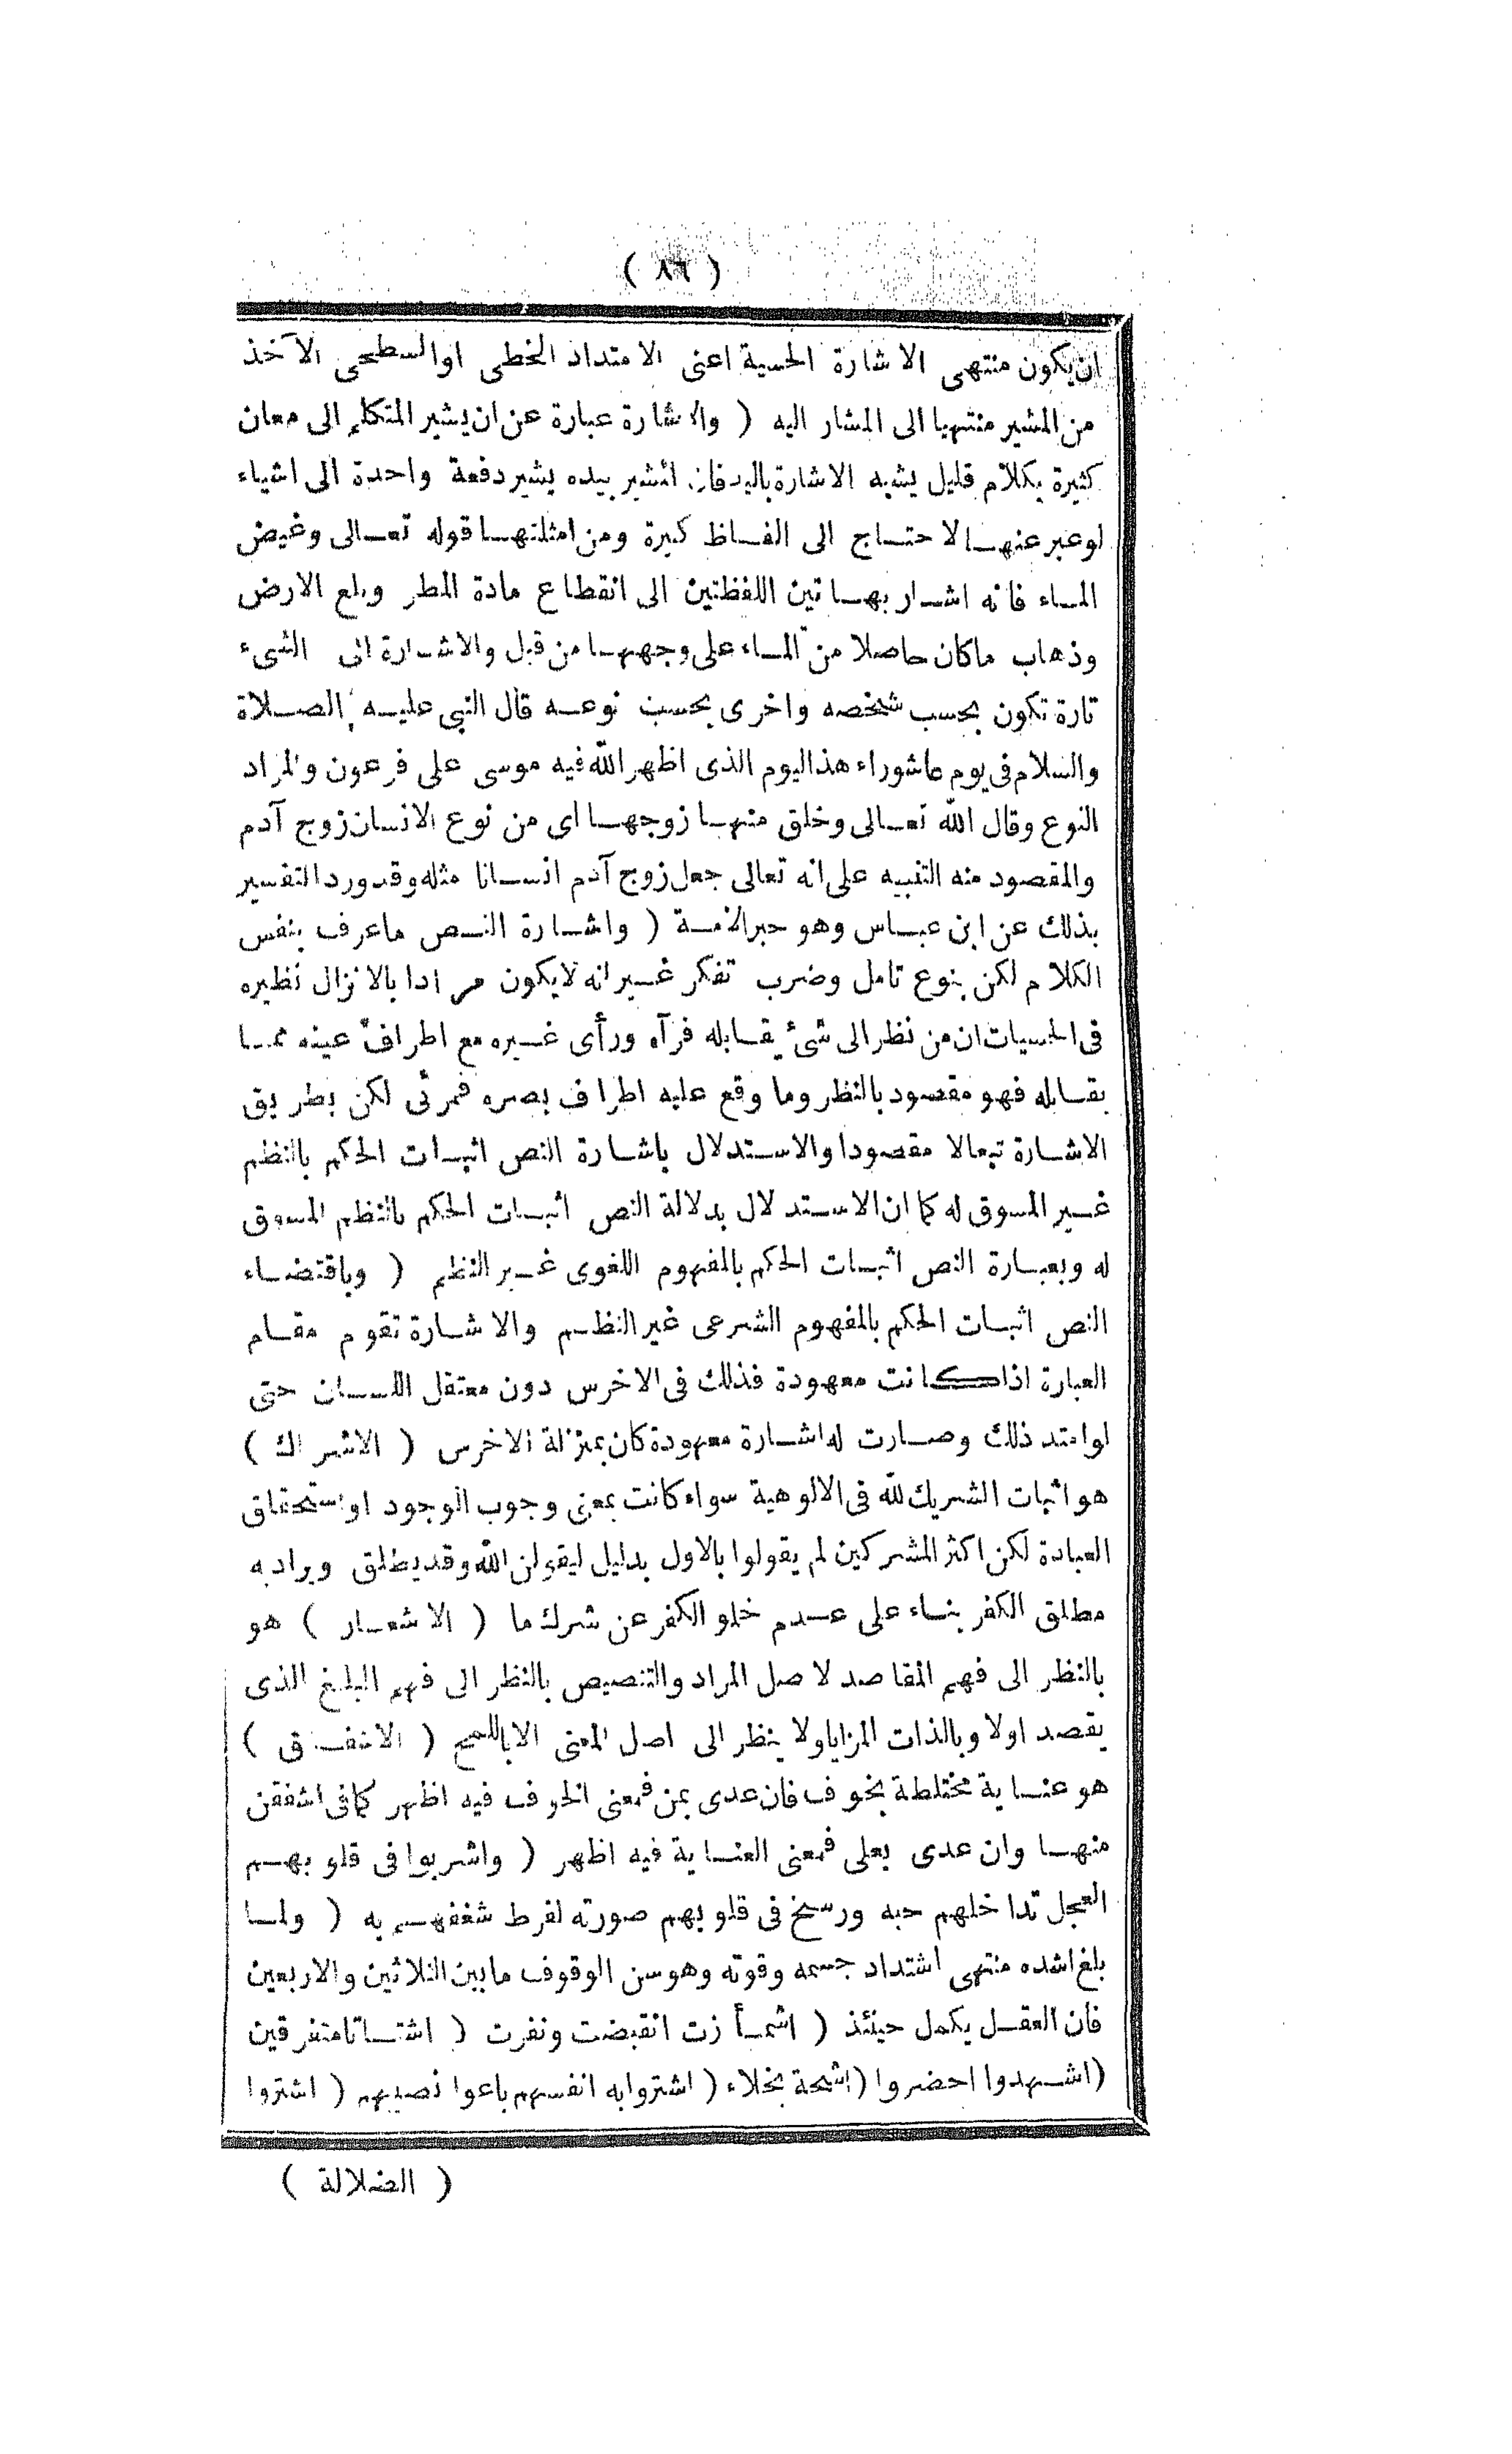 ( ٨٦ )
ان يكون منتهى الاشارة الحسية اعنى الامتداد الخطى او السطحى الآخذ
من المشير منتهيا الى المشار اليه ( والاشارة عبارة عن ان يشير المتكلم الى معان
كثيرة بكلام قليل يشبه الاشارة باليد فان المشير بيده يشير دفعة واحدة الى اشياء
لو عبر عنها لاحتاج الى الفاظ كثيرة ومن امثلتها قوله تعالى وغيض
الماء فانه اشار بهاتين اللفظتين الى انقطاع مادة المطر وبلع الارض
وذهاب ما كان حاصلا من الماء على وجهها من قبل والاشارة الى الشىء
تارة تكون بحسب شخصه واخرى بحسب نوعه قال النبى عليه الصلاة
والسلام فى يوم عاشوراء هذا اليوم الذى اظهر الله فيه موسى على فرعون والمراد
النوع وقال الله تعالى وخلق منها زوجها اى من نوع الانسان زوج آدم
والمقصود منه التنبيه على انه تعالى جعل زوج آدم انسانا مثله وقد ورد التفسير
بذلك عن ابن عباس وهو حبر الامة ( واشارة النص ما عرف بنفس
الكلام لكن بنوع تامل وضرب تفكر غير انه لا يكون مرادا بالانزال نظيره
فى الحسيات ان من نظر الى شئ يقابله فرآه ورأى غيره مع اطراف عينه مما
يقابله فهو مقصود بالنظر وما وقع عليه اطراف بصره فمرئى لكن بطريق
الاشارة تبعا لا مقصودا والاستدلال باشارة النص اثبات الحكم بالنظم
غير المسوق له كما ان الاستدلال بدلالة النص اثبات الحكم بالنظم المسوق
له وبعبارة النص اثبات الحكم بالمفهوم اللغوى غير النظم ( وباقتضاء
النص اثبات الحكم بالمفهوم الشرعى غير النظم والاشارة تقوم مقام
العبارة اذا كانت معهودة فذلك فى الاخرس دون معتقل اللسان حتى
لو امتد ذلك وصارت له اشارة معهودة كان بمنزلة الاخرس ( الاشراك )
هو اثبات الشريك لله فى الالوهية سواء كانت بمعنى وجوب الوجود او استحقاق
العبادة لكن اكثر المشركين لم يقولوا بالاول بدليل ليقولن الله وقد يطلق ويراد به
مطلق الكفر بناء على عدم خلو الكفر عن شرك ما ( الاشعار ) هو
بالنظر الى فهم المقاصد لاصل المراد والتنصيص بالنظر الى فهم البليغ الذى
يقصد اولا وبالذات المزايا ولا ينظر الى اصل المعنى الا باللمح ( الاشفاق )
هو عناية مختلطة بخوف فان عدى بمن فمعنى الخوف فيه اظهر كما فى اشفقن
منها وان عدى بعلى فمعنى العناية فيه اظهر ( واشربوا فى قلوبهم
العجل تداخلهم حبه ورسخ فى قلوبهم صورته لفرط شغفهم به ( ولما
بلغ اشده منتهى اشتداد جسمه وقوته وهو سن الوقوف ما بين الثلاثين والاربعين
فان العقل يكمل حينئذ ( اشمأزت انقبضت ونفرت ( اشتاتا متفرقين
( اشهدوا احضروا ( اشحة بخلاء ( اشتروا به انفسهم باعوا نصيبهم ( اشتروا
( الضلالة )